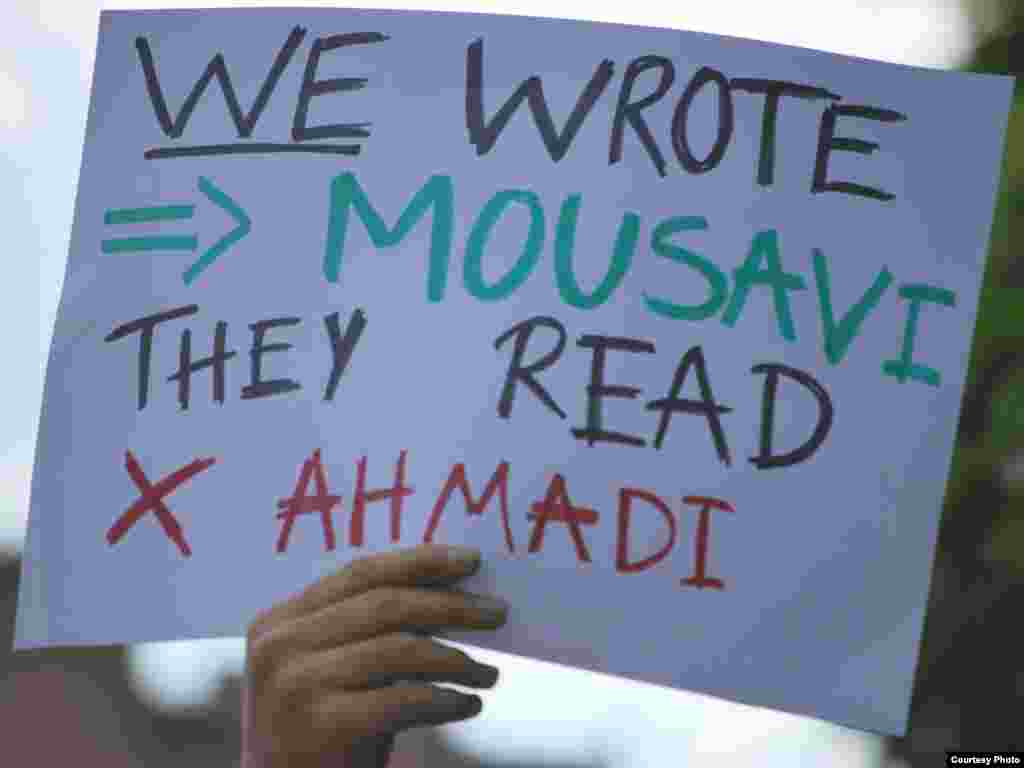 WE WROTE
⇒ MOUSAVI
THEY READ
X AHMADI
Courtesy Photo